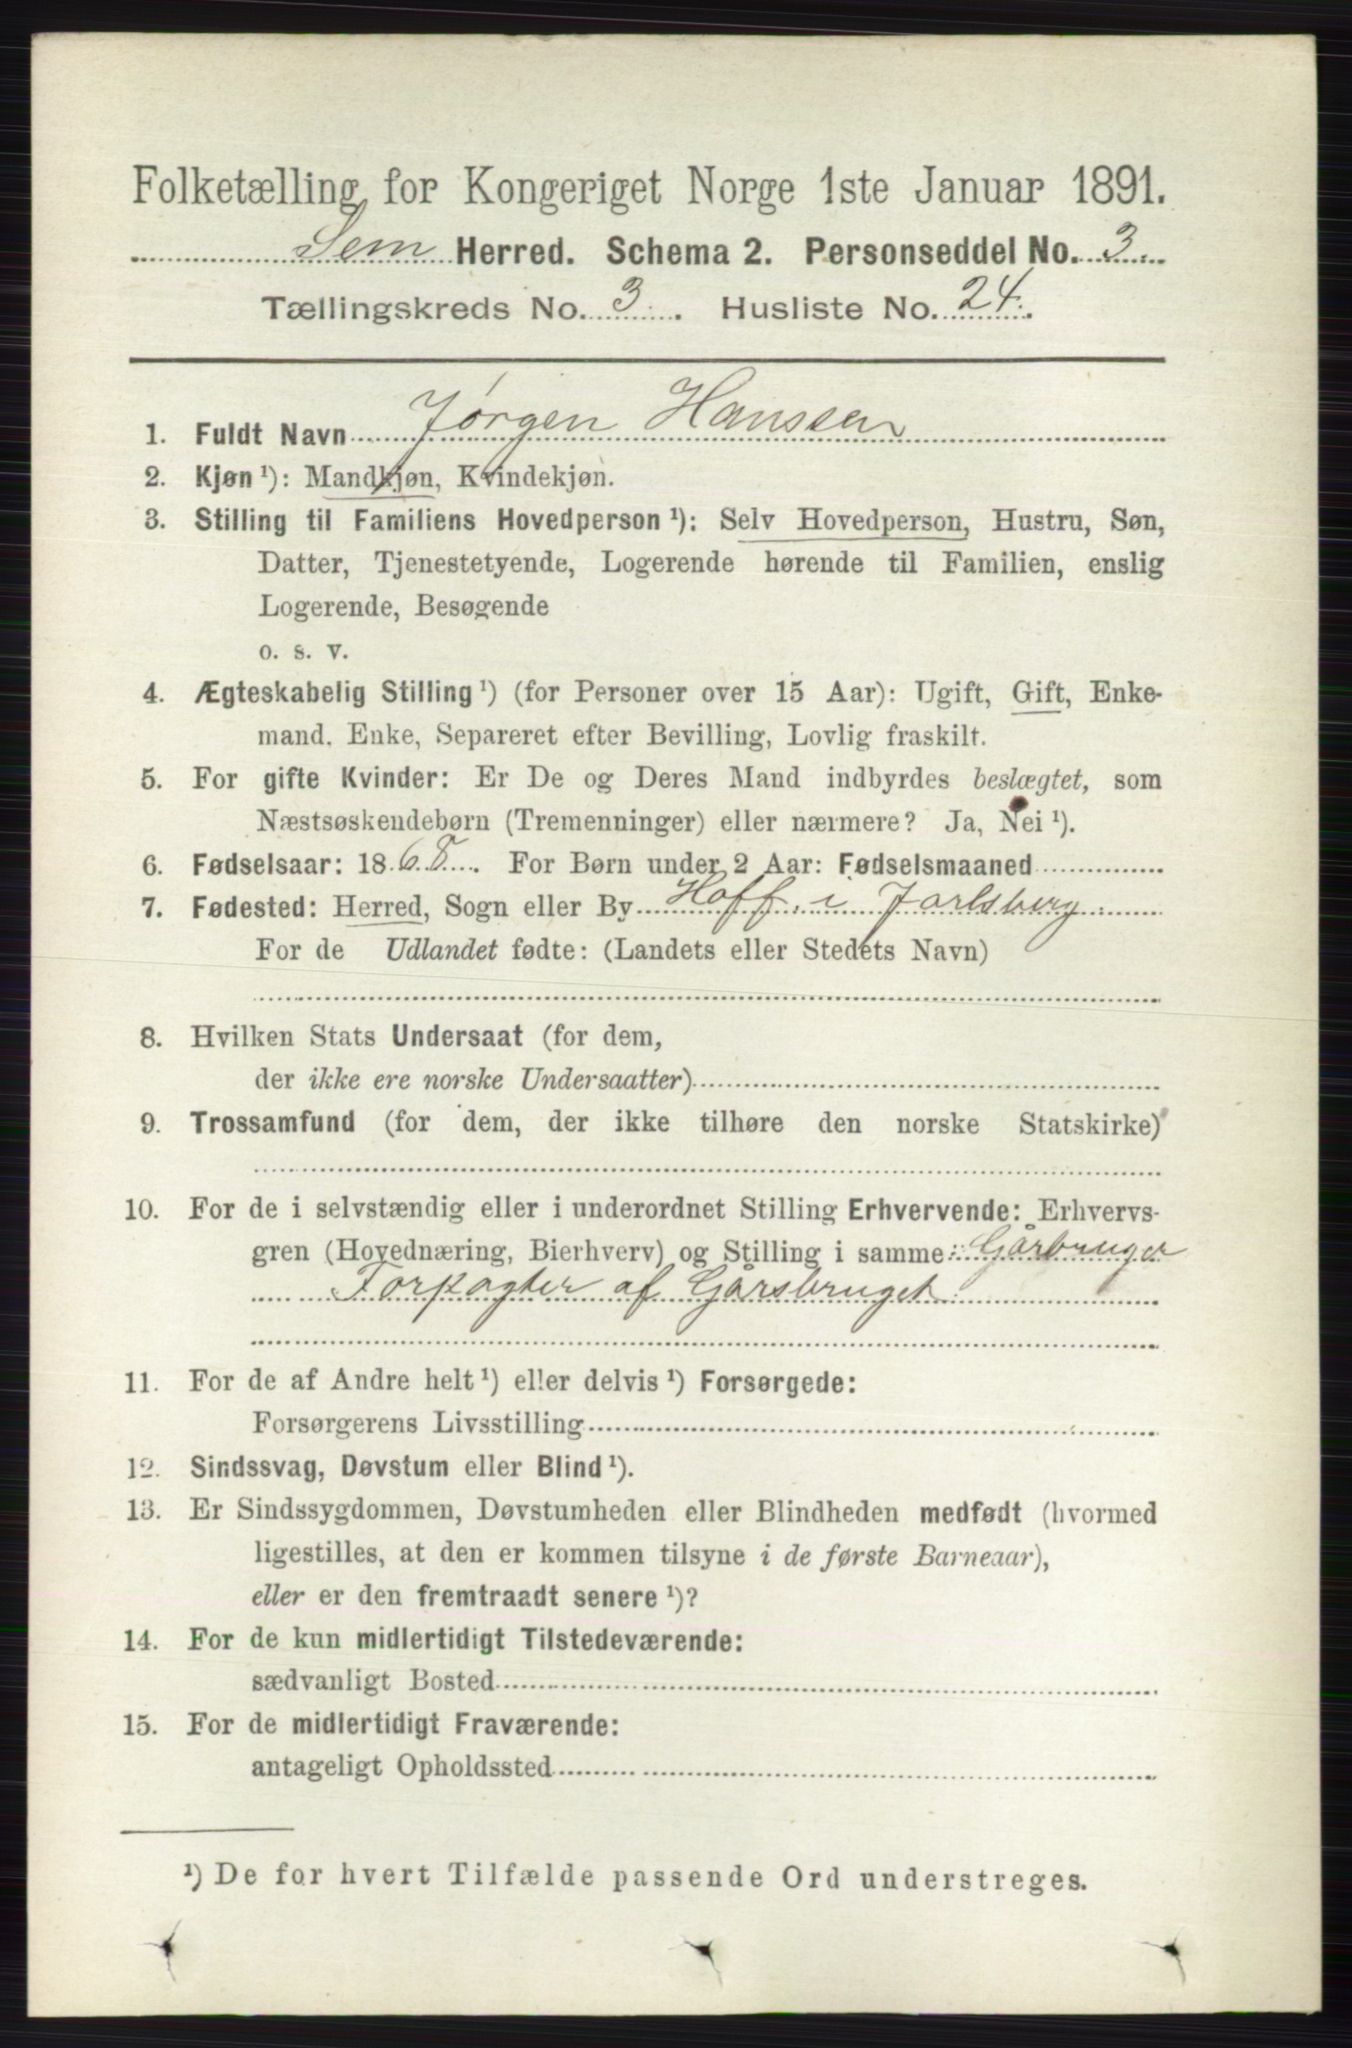 Folketælling for Kongeriget Norge 1ste Januar 1891.
Sem Herred. Schema 2. Personseddel No. 3.
Tællingskreds No. 3. Husliste No. 24.
1. Fuldt Navn Jørgen Hanssen
2. Kjøn ¹): Mandkjøn, Kvindekjøn.
3. Stilling til Familiens Hovedperson ¹): Selv Hovedperson, Hustru, Søn,
Datter, Tjenestetyende, Logerende hørende til Familien, enslig
Logerende, Besøgende
o. s. v.
4. Ægteskabelig Stilling ¹) (for Personer over 15 Aar): Ugift, Gift, Enke-
mand, Enke, Separeret efter Bevilling, Lovlig fraskilt.
5. For gifte Kvinder: Er De og Deres Mand indbyrdes beslægtet, som
Næstsøskendebørn (Tremenninger) eller nærmere? Ja, Nei ¹).
6. Fødselsaar: 1868. For Børn under 2 Aar: Fødselsmaaned
7. Fødested: Herred, Sogn eller By Hoff i Jarlsberg
For de Udlandet fødte: (Landets eller Stedets Navn)
8. Hvilken Stats Undersaat (for dem,
der ikke ere norske Undersaatter)
9. Trossamfund (for dem, der ikke tilhøre den norske Statskirke)
10. For de i selvstændig eller i underordnet Stilling Erhvervende: Erhvervs-
gren (Hovednæring, Bierhverv) og Stilling i samme: Gårbruger
Forpagter af Gårsbruget
11. For de af Andre helt ¹) eller delvis ¹) Forsørgede:
Forsørgerens Livsstilling
12. Sindssvag, Døvstum eller Blind ¹).
13. Er Sindssygdommen, Døvstumheden eller Blindheden medfødt (hvormed
ligestilles, at den er kommen tilsyne i de første Barneaar),
eller er den fremtraadt senere ¹)?
14. For de kun midlertidigt Tilstedeværende:
sædvanligt Bosted
15. For de midlertidigt Fraværende:
antageligt Opholdssted
¹) De for hvert Tilfælde passende Ord understreges.